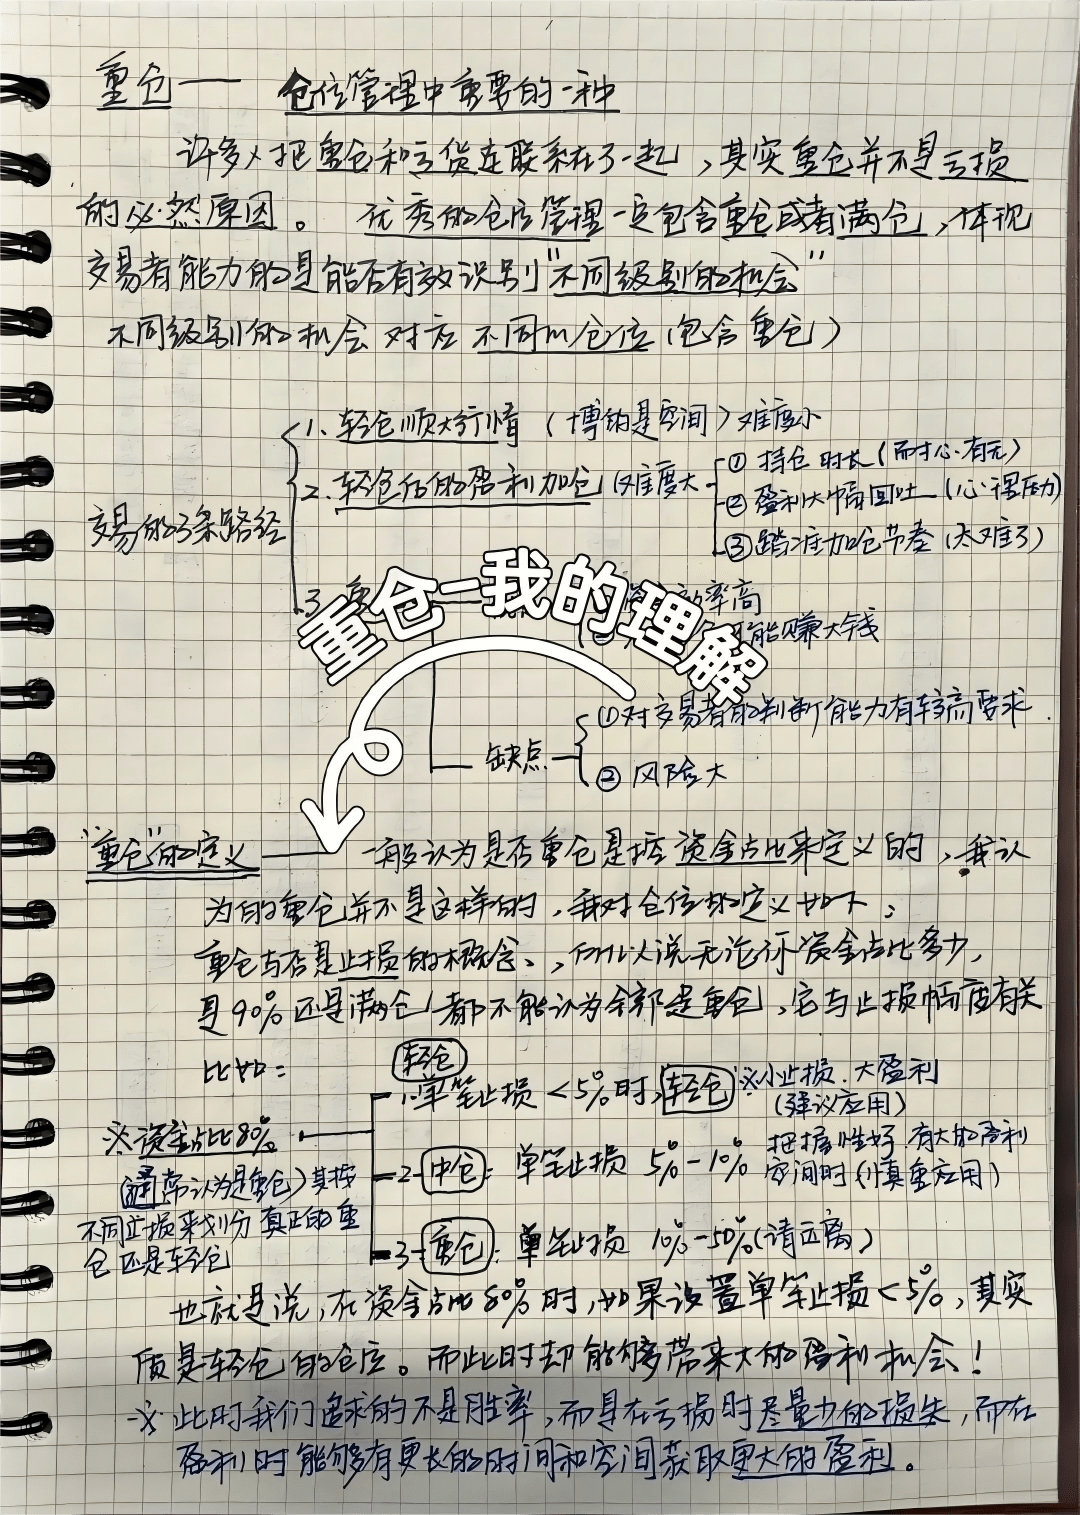 重仓—— 仓位管理中重要的一种
许多人把重仓和亏货连联系在了一起，其实重仓并不是亏损
的必然原因。 优秀的仓位管理一定包含重仓或者满仓，体现
交易者能力的是能否有效识别"不同级别的机会"
不同级别的机会对应不同的仓位(包含重仓)
交易的3条路经
1. 轻仓顺大行情 (博的是空间) 难度小
2. 轻仓后的盈利加仓 (难度大
① 持仓时长(耐心有无)
② 盈利大幅回吐(心理压力)
③踏准加仓节奏(太难了)
3
率高
能赚大钱
重仓-我的理解
缺点
①对交易者的判断能力有较高要求.
② 风险大
"重仓"的定义 —— 一般认为是否重仓是按资金占比来定义的，我认
为的重仓并不是这样的，我对仓位的定义如下；
重仓与否是止损的概念、，所以说无论你资金占比多少，
是90%还是满仓(都不能认为全部是重仓)，它与止损幅度有关
比如：
※资金占比80%
(通常认为是重仓)其按
不同止损来划分真正的重
仓还是轻仓
轻仓
1.单笔止损<5%时,轻仓 ※小止损.大盈利
(建议应用)
2-中仓：单笔止损 5%-10% 把握性好.有大的盈利
空间时(慎重应用)
3-重仓：单笔止损 10%-50%(请远离)
也就是说，在资金占比80%时，如果设置单笔止损<5%，其实
质是轻仓的仓位。而此时却能够带来大的盈利机会！
※ 此时我们追求的不是胜率，而是在亏损时尽量少的损失，而在
盈利时能够有更长的时间和空间获取更大的盈利。